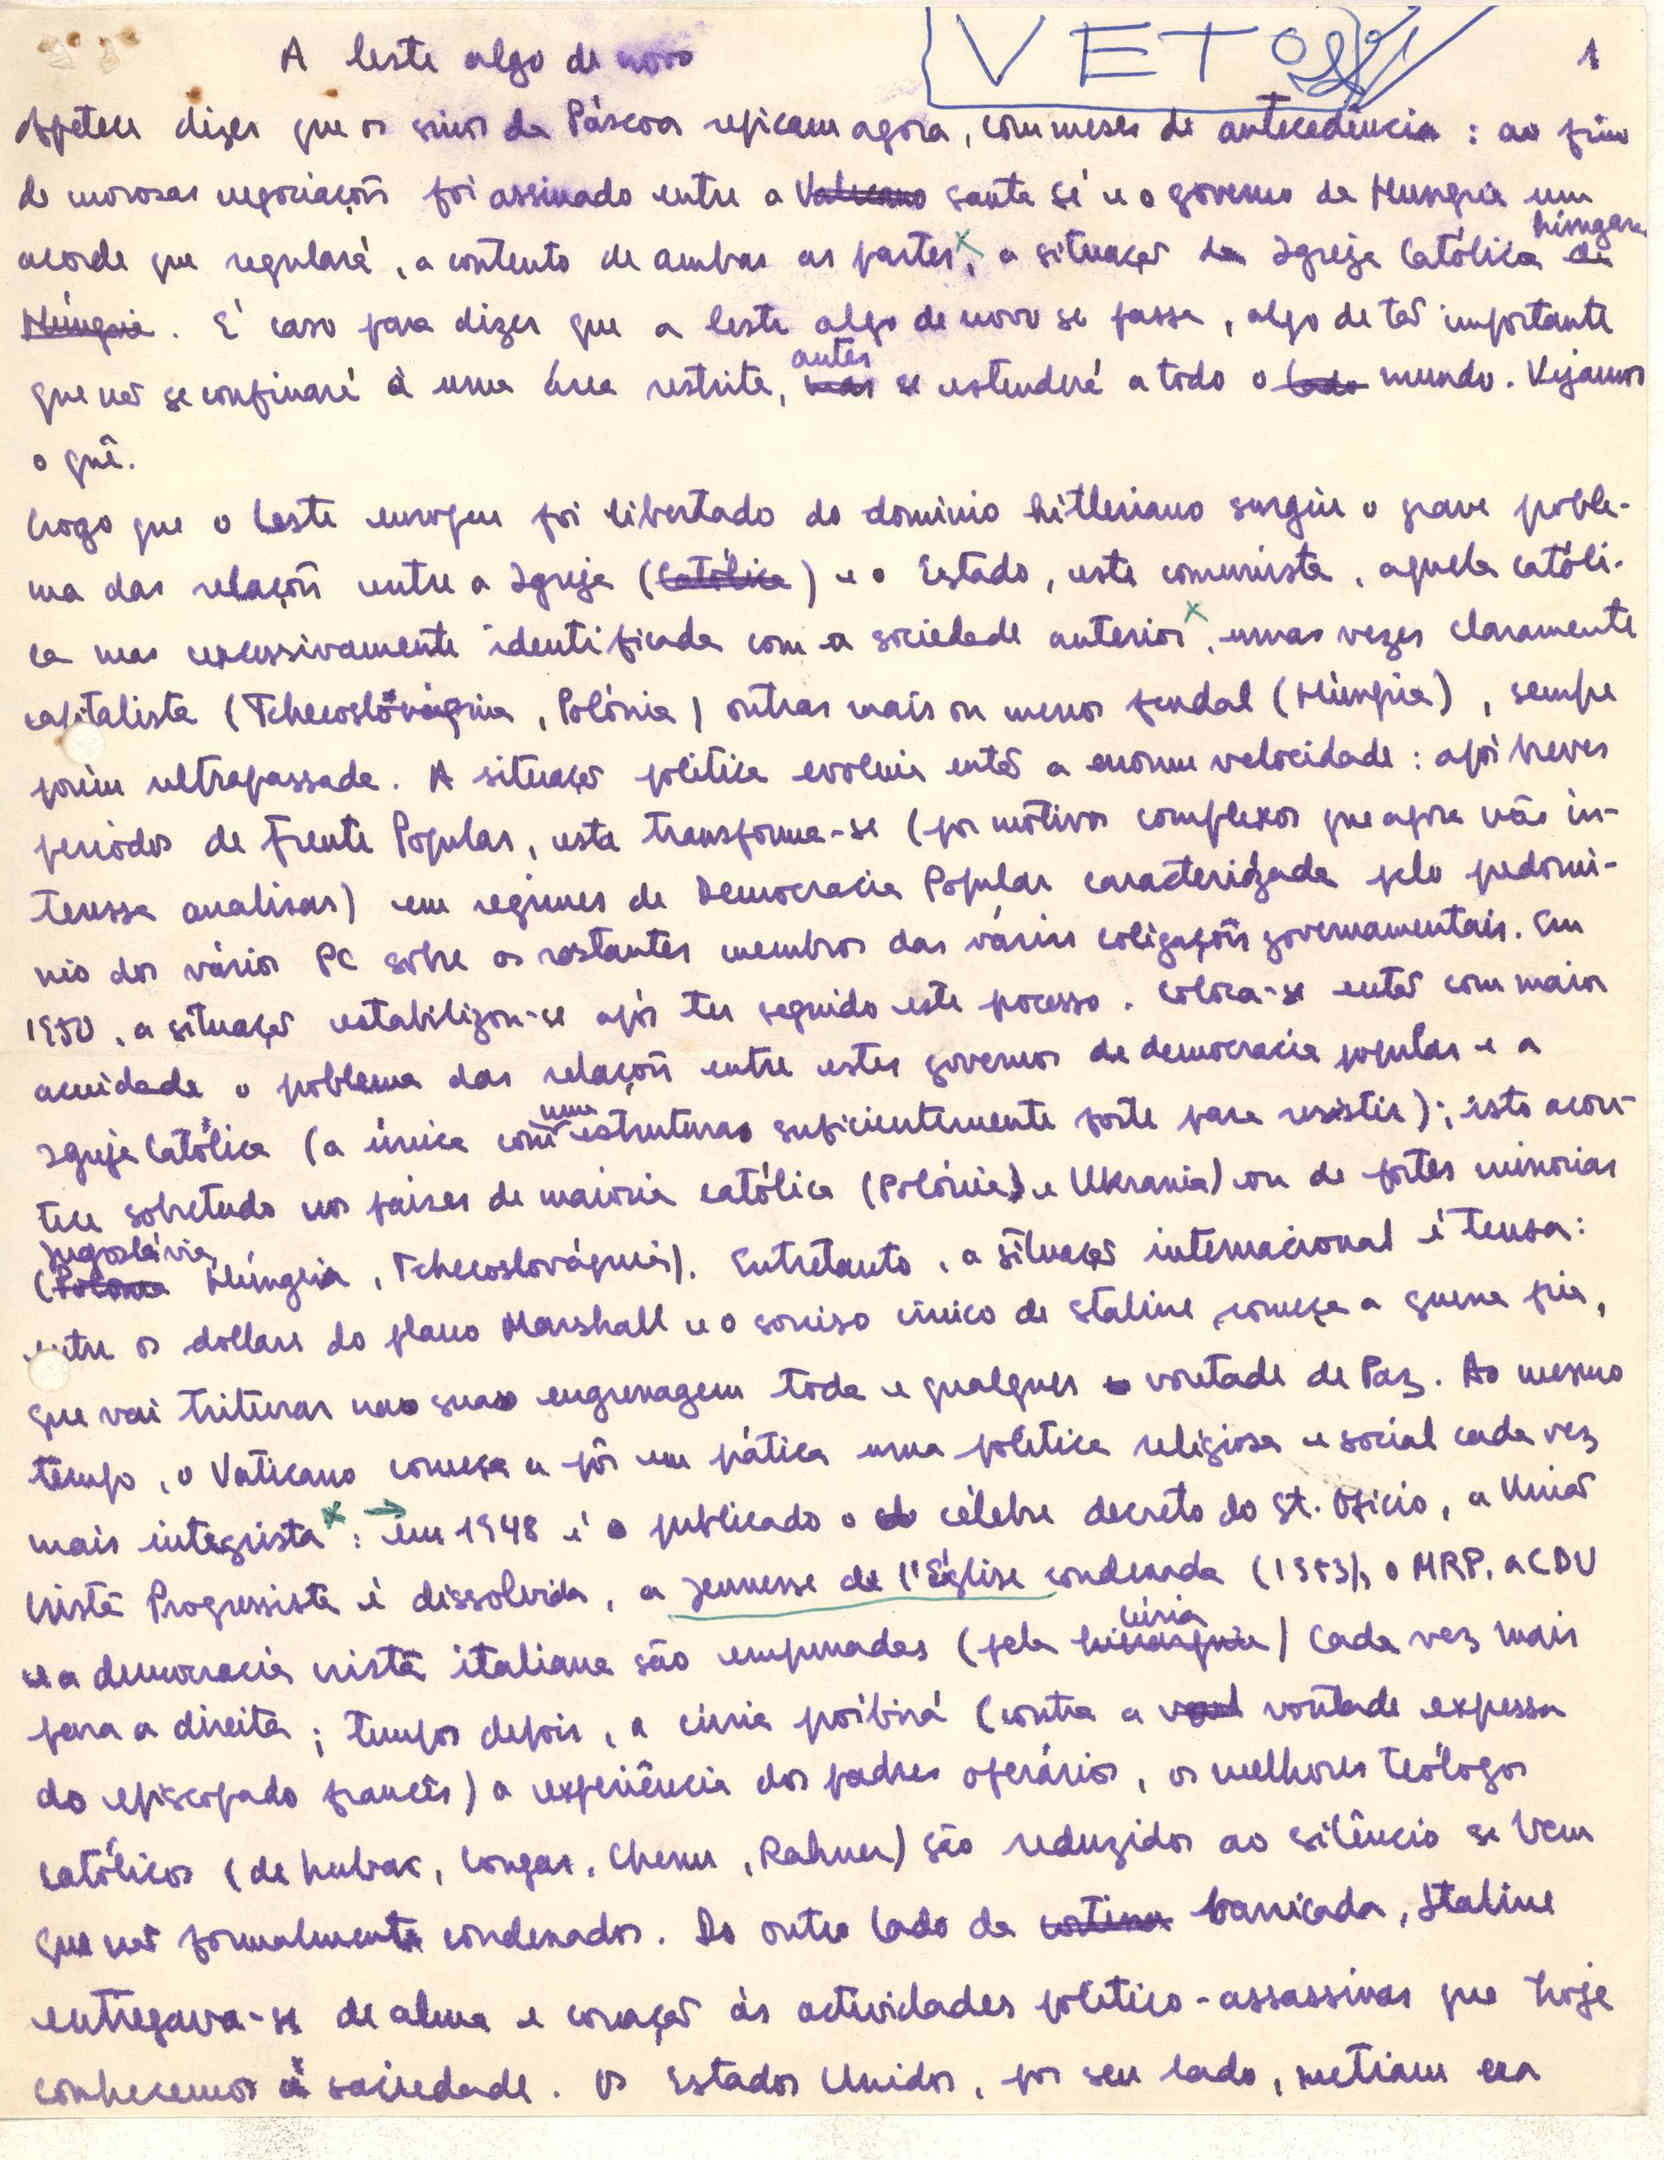 A leste algo de novo
VETO
1
Apetece dizer que os sinos da Páscoa repicam agora, com meses de antecedência : ao fim
de morosas negociações foi assinado entre a Vaticano santa Sé e o governo da Hungria um
acordo que regulará, a contento de ambas as partes, a situação da Igreja Católica da húngara
Hungria. É caso para dizer que a leste algo de novo se passa, algo de tão importante
que não se confinará à uma área restrita, mas antes se estenderá a todo o lado mundo. Vejamos
o quê.
Logo que o Leste europeu foi libertado do domínio hitleriano surgiu o grave proble-
ma das relações entre a Igreja (Católica) e o Estado, este comunista, aquela católi-
ca mas excessivamente identificada com a sociedade anterior, umas vezes claramente
capitalista (Tchecoslováquia, Polónia) outras mais ou menos feudal (Hungria), sempre
porém ultrapassada. A situação política evoluia então a enorme velocidade : após breves
períodos de Frente Popular, esta transforma-se (por motivos complexos que agora não in-
teressa analisar) em regimes de Democracia Popular caracterizada pelo predomí-
nio dos vários PC sobre os restantes membros das várias coligações governamentais. Em
1950, a situação estabilizou-se após ter seguido este processo. Coloca-se então com maior
acuidade o problema das relações entre estes governos de democracia popular e a
Igreja Católica (a única com uma estrutura suficientemente forte para resistir); isto acon-
tece sobretudo nos países de maioria católica (Polónia) e Ukrania) ou de fortes minorias
(Polónia Jugoslávia, Húngria, Tchecoslováquia). Entretanto, a situação internacional é tensa :
entre os dollars do plano Marshall e o sorriso cínico de Staline começa a guerra fria,
que vai triturar na sua engrenagem toda e qualquer vontade de Paz. Ao mesmo
tempo, o Vaticano começa a pôr em prática uma política religiosa e social cada vez
mais integrista : → em 1948 é publicado o célebre decreto do St. Ofício, a União
Cristã Progressista é dissolvida, a Jeunesse de l'Église condenada (1953), o MRP, a CDU
e a democracia cristã italiana são empurradas (pela hierarquia cúria) cada vez mais
para a direita ; tempos depois, a cúria proíbirá (contra a vontade expressa
do episcopado francês) a experiência dos padres operários, os melhores teólogos
católicos (de Lubac, Congar, Chenu, Rahner) são reduzidos ao silêncio se bem
que não formalmente condenados. Do outro lado da cortina barricada, Staline
entregava-se de alma e coração às actividades político-assassinas que hoje
conhecemos à saciedade. Os Estados Unidos, por seu lado, metiam na